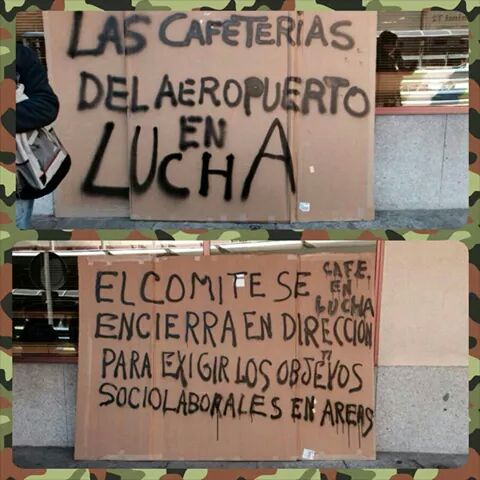 LAS CAFETERIAS
DEL AEROPUERTO
EN
LUCHA
EL COMITE SE
ENCIERRA EN DIRECCIÓN
PARA EXIGIR LOS OBJEVOS
TI
SOCIOLABORALES EN AREAS
CAFE.
EN
LUCHA